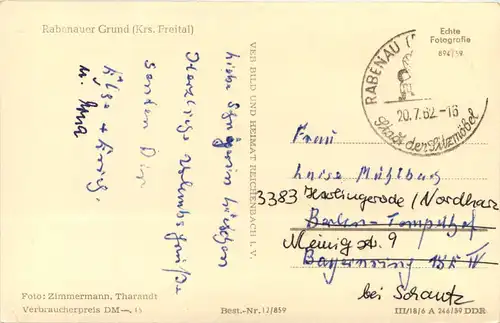 Rabenauer Grund (Krs. Freital)
Echte
Fotografie
894/59
RABENAU
20.7.62-16
Stadt der Sitzmöbel
Liebe Schwägerin
Herzliche Urlaubsgrüße
senden Dir
u.
VEB BILD UND HEIMAT REICHENBACH i. V.
Frau
Luise Mühlbach
3383 Harlingerode (Nordharz
Berlin-Tempelhof
Meinig str. 9
Bayernring
bei Schautz
Foto: Zimmermann, Tharandt
Verbraucherpreis DM —.15
Best.-Nr. 12/859
III/18/6 A 246/59 DDR